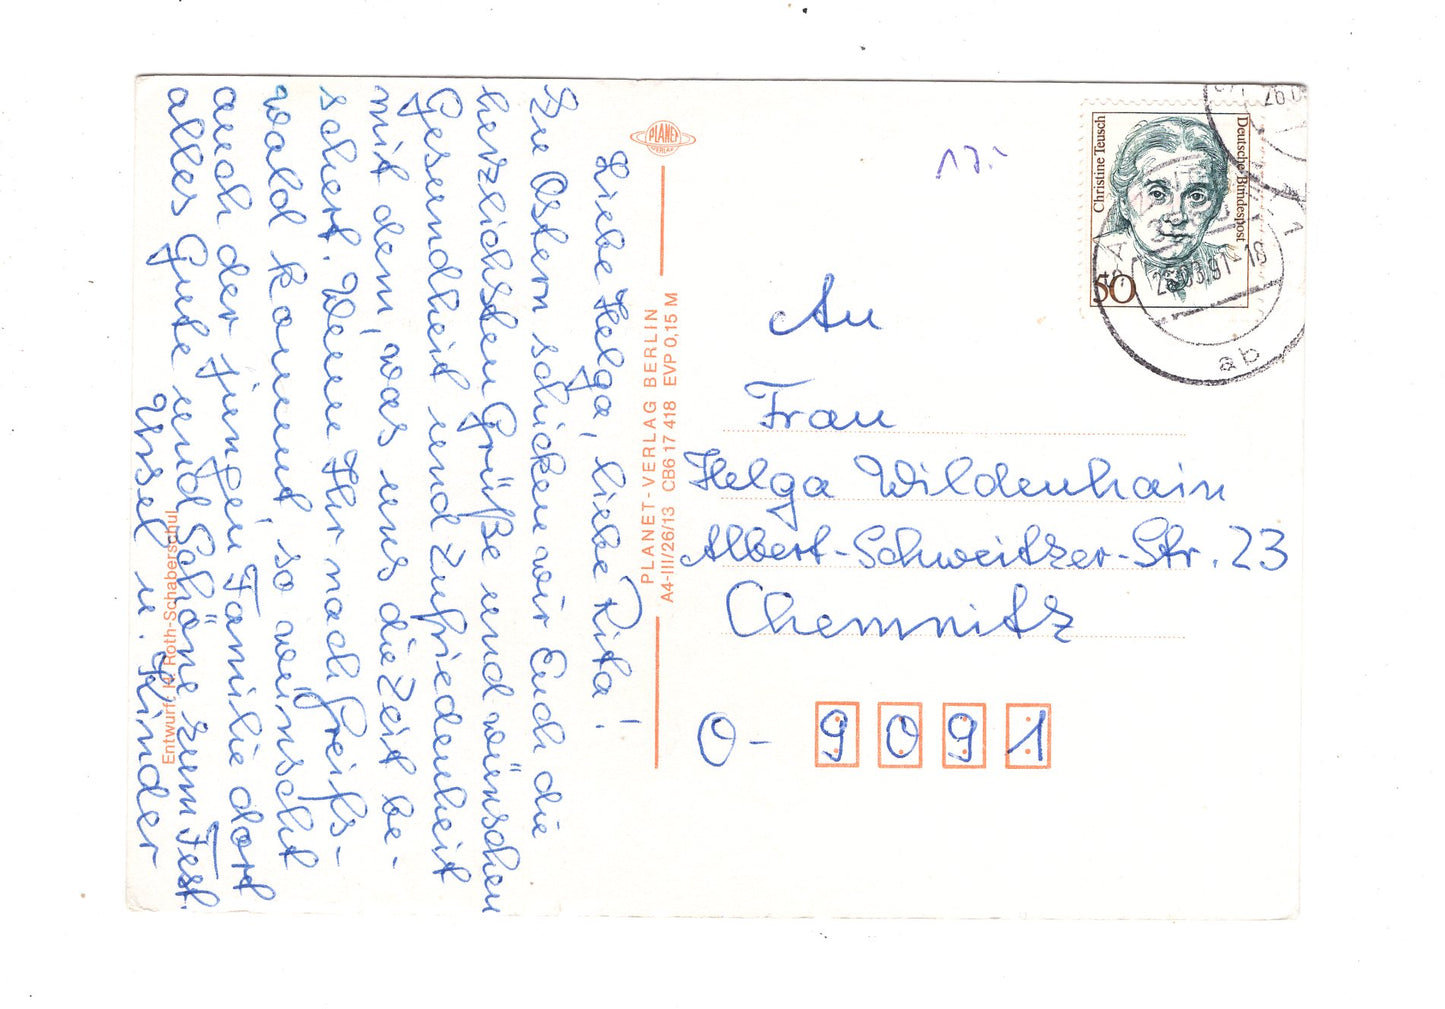 Liebe Helga, liebe Rita!
Zu Ostern schicken wir Euch die
herzlichsten Grüße und wünschen
Gesundheit und Zufriedenheit
mit dem, was uns die Zeit be-
schert. Wenn Ihr nach Greifs-
wald kommt, so wünscht
auch der jungen Familie dort
alles Gute und Schöne zum Fest.
Ursel u. Kinder
Entwurf: K. Roth-Schaberschul
PLANET
VERLAG
PLANET-VERLAG BERLIN
A4-III/26/13 CB6 17 418 EVP 0,15 M
17.-
Christine Teusch
Deutsche Bundespost
50
26.03.91-18
ab
An
Frau
Helga Wildenhain
Albert-Schweitzer-Str. 23
Chemnitz
O- 9091